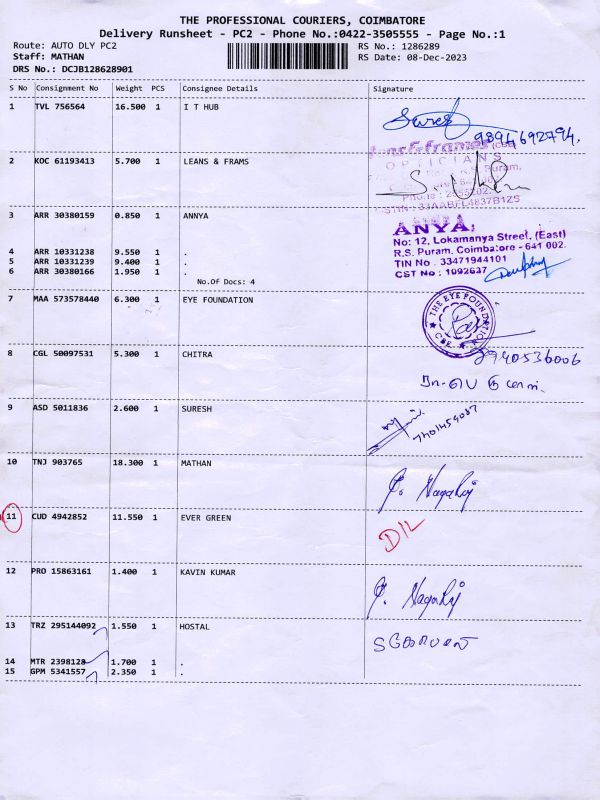 THE PROFESSIONAL COURIERS, COIMBATORE
Delivery Runsheet - PC2 - Phone No.:0422-3505555 - Page No.:1
Route: AUTO DLY PC2 RS No.: 1286289
Staff: MATHAN RS Date: 08-Dec-2023
DRS No.: DCJB128628901
S No Consignment No Weight PCS Consignee Details Signature
1 TVL 756564 16.500 1 I T HUB
9894692794.
2 KOC 61193413 5.700 1 LEANS & FRAMS
OPTICIANS
3 ARR 30380159 0.850 1 ANNYA
ANYA
No: 12, Lokamanya Street, (East)
R.S. Puram, Coimbatore - 641 002.
TIN No : 33471944101
CST No : 1092637
4 ARR 10331238 9.550 1 .
5 ARR 10331239 9.400 1 .
6 ARR 30380166 1.950 1 .
No.Of Docs: 4
7 MAA 573578440 6.300 1 EYE FOUNDATION
THE EYE FOUNDATION
CBE.
8 CGL 50097531 5.300 1 CHITRA
9 ASD 5011836 2.600 1 SURESH
10 TNJ 903765 18.300 1 MATHAN
P. Nagaraj
11 CUD 4942852 11.550 1 EVER GREEN
D/L
12 PRO 15863161 1.400 1 KAVIN KUMAR
P. Nagaraj
13 TRZ 295144092 1.550 1 HOSTAL
14 MTR 2398128 1.700 1 .
15 GPM 5341557 2.350 1 .